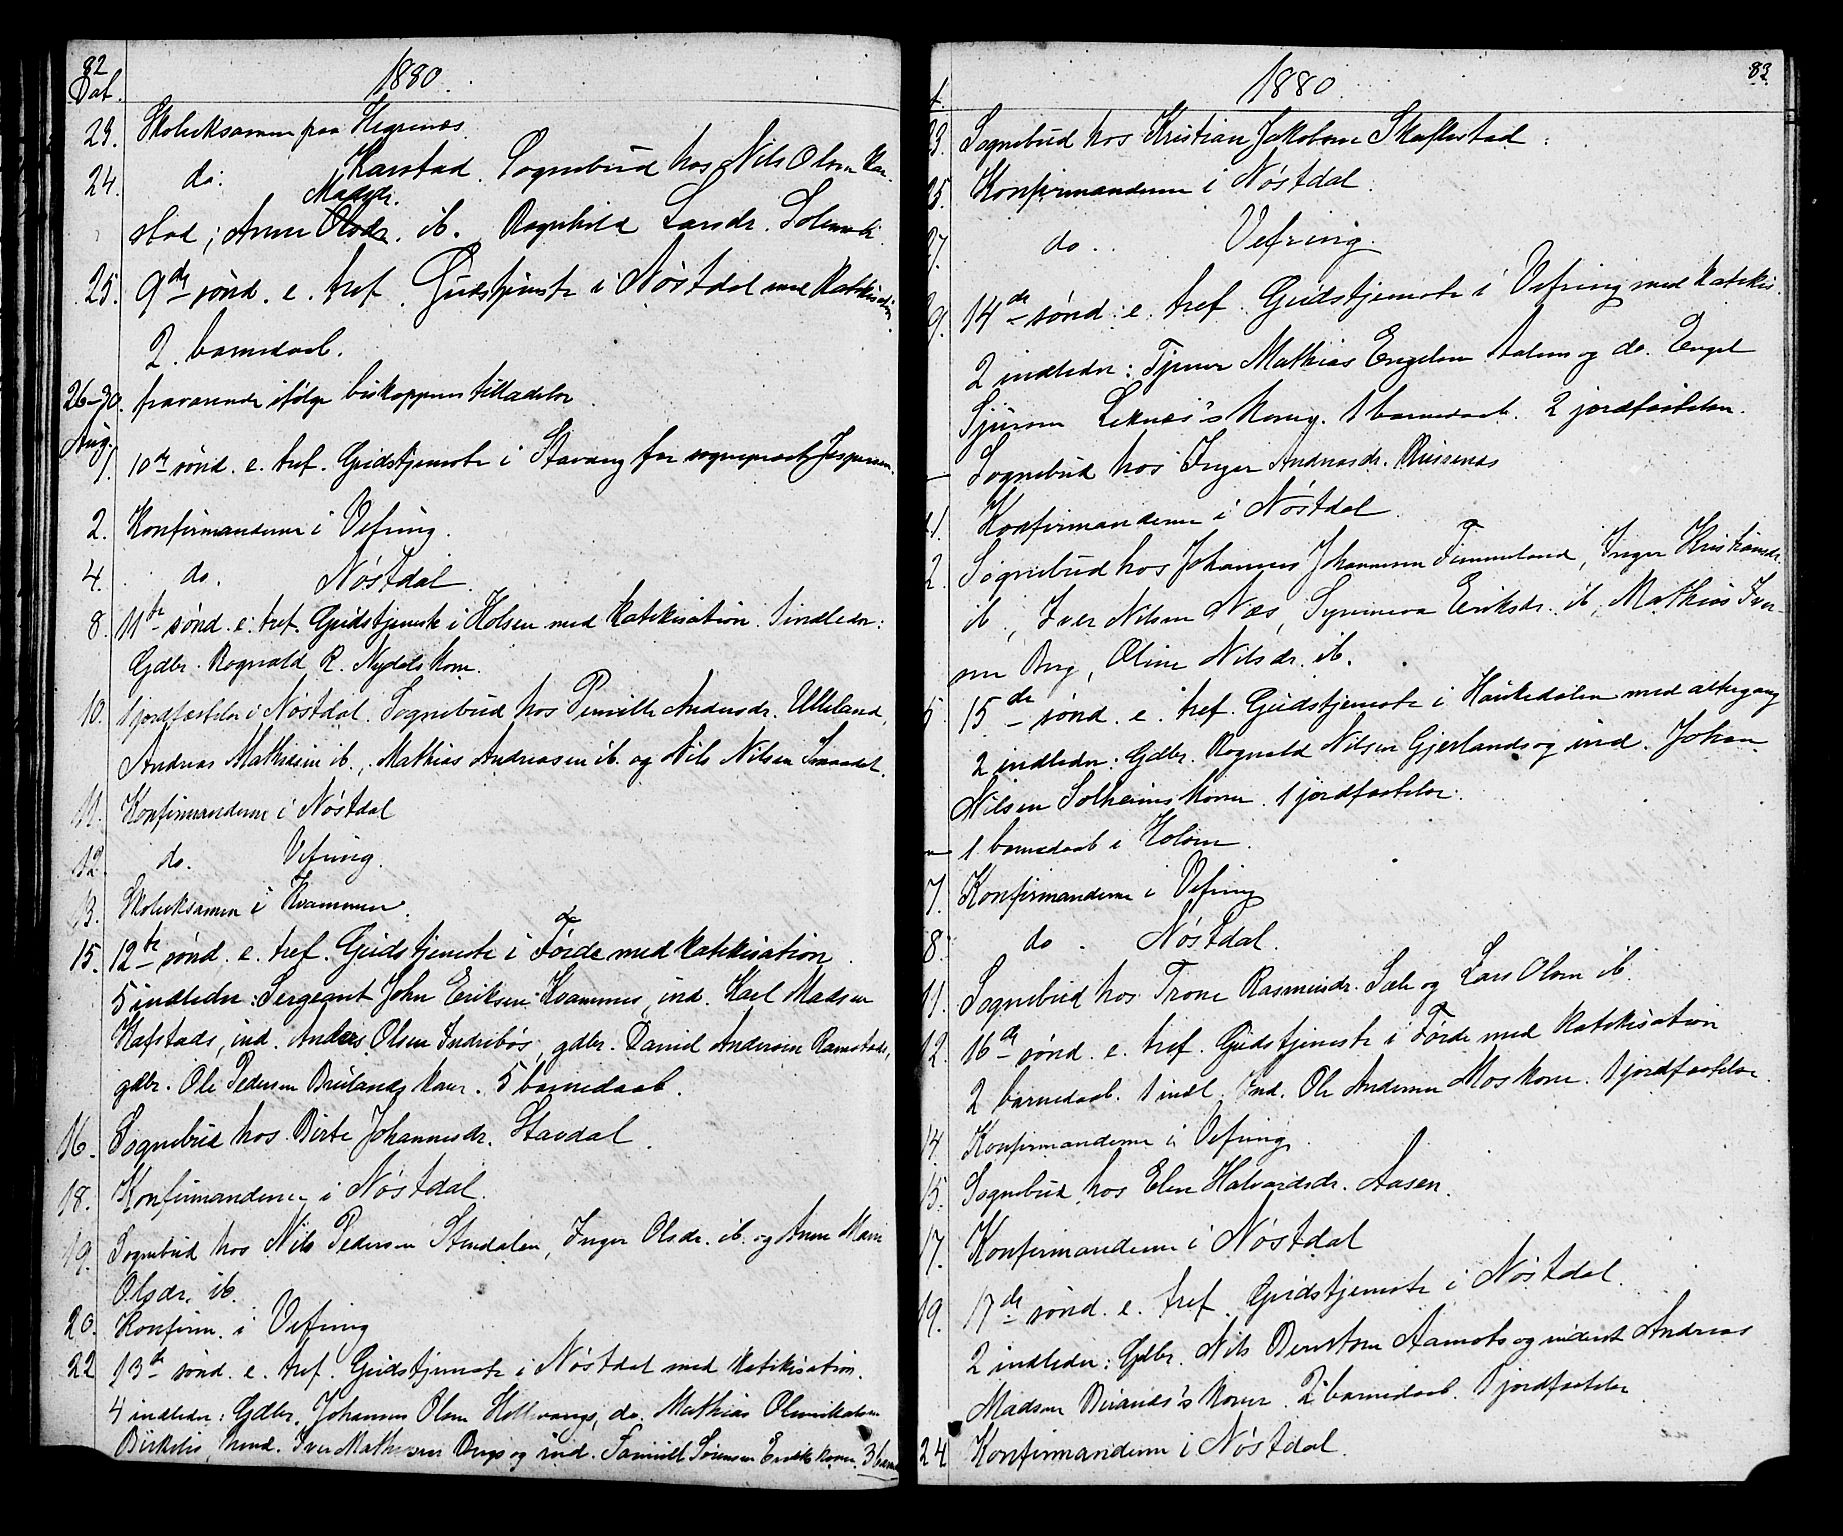 82
Dat. 1880.
23. Skoleeksamen paa Hegrenæs.
24. do. Karstad. Sognebud hos Nils Olsen Kar-
Madsdr.
stad; Anne Olsdr. ib. Ragnhild Larsdr. Solheim
25. 9de sønd. e. tref. Gudstjeneste i Nøstdal med Katekisation.
2 barnedaab.
26-30. fraværende ifølge biskoppens tilladelse
Aug.
1. 10de sønd. e. tref. Gudstjeneste i Stavang for sogneprest Jespersen.
2. Konfirmanderne i Vefring.
4. do. Nøstdal.
8. 11te sønd. e. tref. Gudstjeneste i Holsen med katekisation. 1 indleder:
Gdbr. Rognald R. Nydals Kone.
10. 1 jordfæstelse i Nøstdal. Sognebud hos Pernille Andersdr. Ulleland,
Andreas Mathiesen ib., Mathias Andreasen ib. og Nils Nilsen
11. Konfirmanderne i Nøstdal
12. do. Vefring.
13. Skoleeksamen i Kvammen.
15. 12te sønd. e. tref. Gudstjeneste i Førde med katekisation.
5 indleder: Sergeant John Eriksen Kvammes, ind. Karl Madsen
Hafstads, ind. Anders Olsen Indrebøs, gdbr. Daniel Andersen Ramstads,
gdbr. Ole Pedersen Brulands koner. 5 barnedaab.
16. Sognebud hos Birte Johannesdr. Stavdal.
18. Konfirmanderne i Nøstdal.
19. Sognebud hos Nils Pedersen Steudalen, Inger Olsdr. ib. og Anne Marie
Olsdr. ib.
20. Konfirm. i Vefring
22 13de sønd. e. tref. Gudstjeneste i Nøstdal med katekisation.
4 indleder: Gdbr. Johannes Olsen do. Mathias
Birkelis, Iver Mathiesen Bergs og ind. Samuel Sørensen koner. 3 barne
83.
1880.
23. Sognebud hos Kristian Jakobsen Skaflestad.
25. Konfirmanderne i Nøstdal.
27. do. Vefring.
9. 14de sønd. e. tref. Gudstjeneste i Vefring med katekis.
2 indleder: Tjener Mathias Engelsen og do. Engel
Sjursen Leknæs's koner. 1 barnedaab. 2 jordfæstelser.
— Sognebud hos Inger Andreasdr. Russenæs
1. Konfirmanderne i Nøstdal.
2. Sognebud hos Johannes Johannesen Fimmeland, Inger Kristiansdr.
ib., Iver Nilsen Næs, Synneva Eriksdr. ib., Mathias Iver-
sen Berg, Oline Nilsdr. ib.
5 15de sønd. e. tref. Gudstjeneste i Haukedalen med altergang
2 indleder: Gdbr. Rognald Nilsen Gjerlands og ind. Johan
Nilsen Solheims koner. 1 jordfæstelse.
— 1 barnedaab i Holsen.
7. Konfirmanderne i Vefring
8. do. Nøstdal.
11. Sognebud hos Trone Rasmusdr. Sæle og Lars Olsen ib.
12. 16de sønd. e. tref. Gudstjeneste i Førde med katekisation
2 barnedaab. 1 indl. Ind. Ole Andersen Mos kone. 1 jordfæstelse.
14. Konfirmanderne i Vefring.
15. Sognebud hos Elen Halvardsdr. Aasen.
17. Konfirmanderne i Nøstdal
19. 17de sønd. e. tref. Gudstjeneste i Nøstdal.
2 indleder: Gdbr. Nils Bentsen Aamots og inderst Andreas
Madsen koner. 2 barnedaab. 1 jordfæstelse
24 Konfirmanderne i Nøstdal.